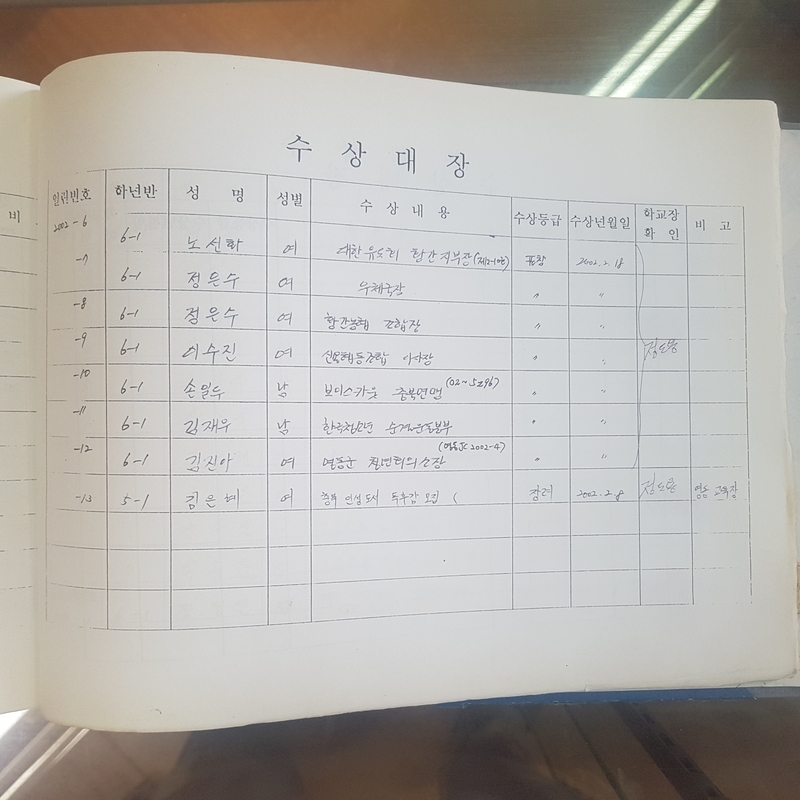 수 상 대 장
일련번호 학년반 성 명 성별 수 상 내 용 수상등급 수상년월일 학교장 확 인 비 고
비
2002-6 6-1 노선화 여 대한 황간지부장 표창 2002. 2. 18
-7 6-1 정은수 여 우체국장 〃 〃
-8 6-1 정은수 여 황간농협 조합장 〃 〃
-9 6-1 이수진 여 이사장 〃 〃
-10 6-1 손일두 남 보이스카웃 충북연맹 (02-5296) 〃 〃
-11 6-1 김재우 남 한국청소년 〃 〃
-12 6-1 김진아 여 영동군 청년회의소장 (영동JC 2002-4) 〃 〃
-13 5-1 김은혜 여 충북 인성도서 독후감 모집 ( 장려 2002. 2. 8 영동 교육장